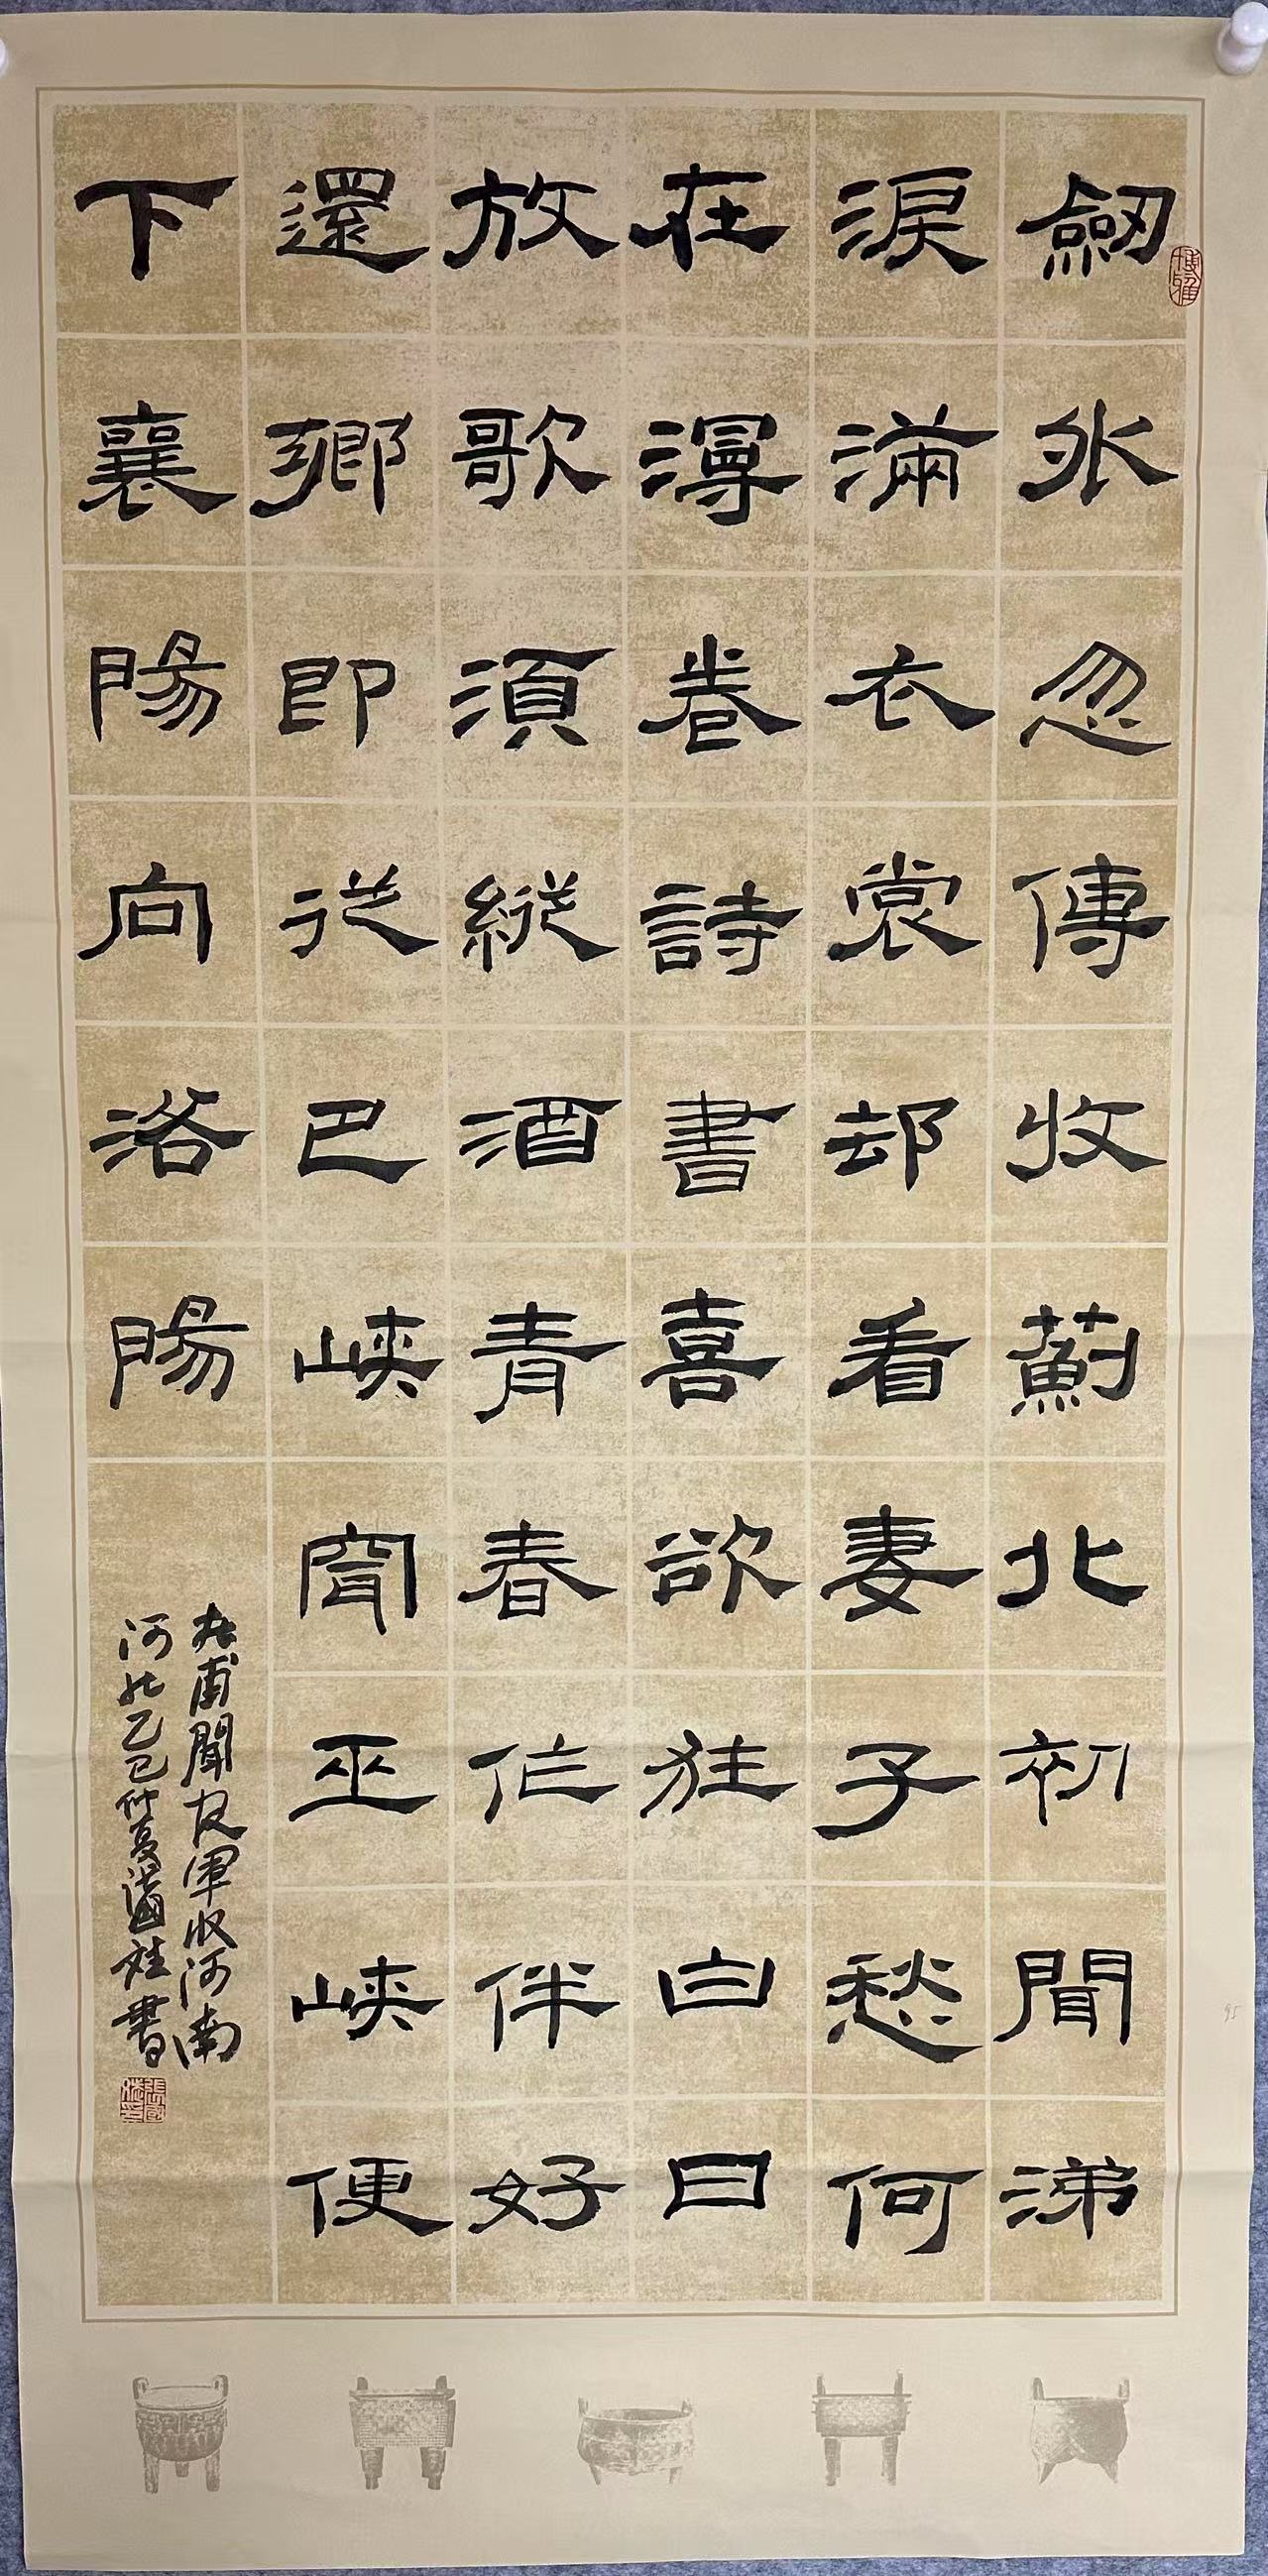 劒外忽傳收薊北初聞涕
淚滿衣裳却看妻子愁何
在漫卷詩書喜欲狂白日
放歌須縱酒青春作伴好
還鄉即從巴峽穿巫峽便
下襄陽向洛陽
杜甫聞官軍收河南
河北乙巳仲夏張國柱書
博雅